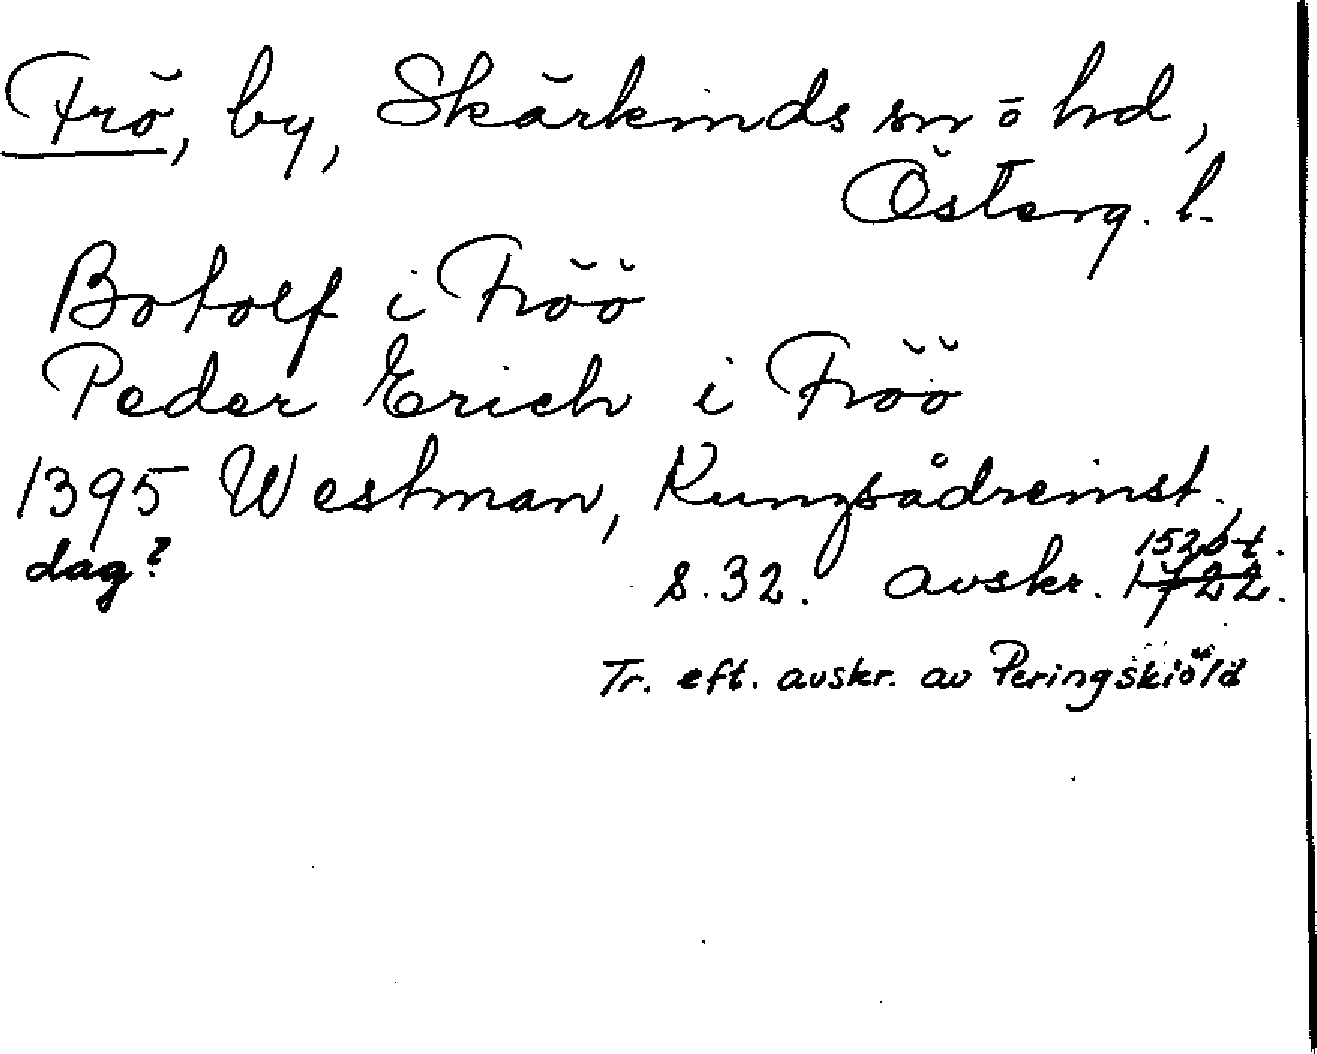 Frö, by, Skärkinds sn o hd,
Österg. l.
Botolf i Fröö
Peder Erich i Fröö
1395 Westman, Kungsådreinst.,
dag? s. 32. avskr. 1722.
Tr. eft. avskr. av Peringskiöld